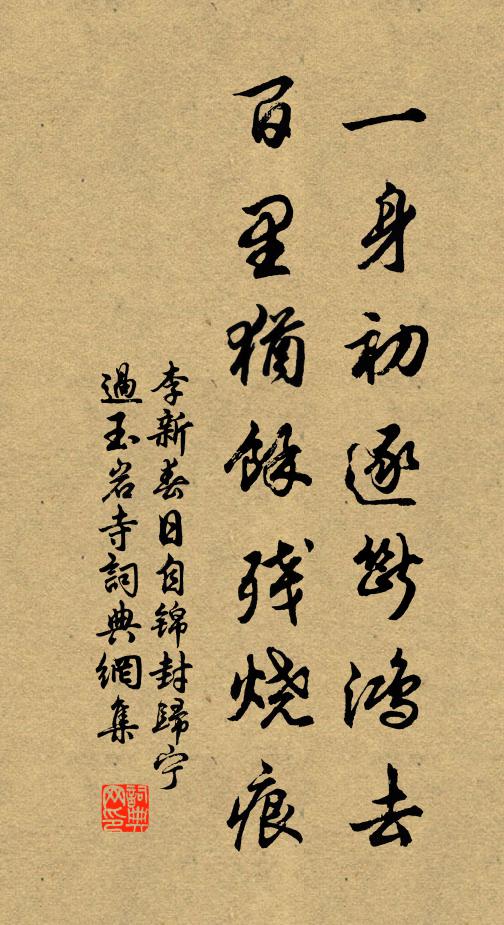 一身初逐断鸿去
百里猶餘残烧痕
李新春日自锦封歸宁
過玉岩寺詞典網集
詞典网印